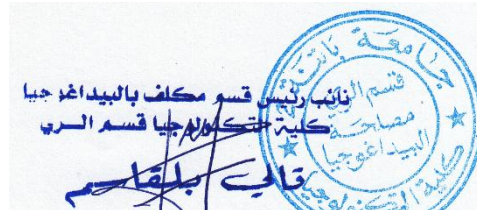 نائب رئيس قسم مكلف بالبيداغوجيا
كلية التكنولوجيا قسم الري
قالي بلقاسم
جامعة باتنة
قسم الري
مصلحة
البيداغوجيا
كلية التكنولوجيا